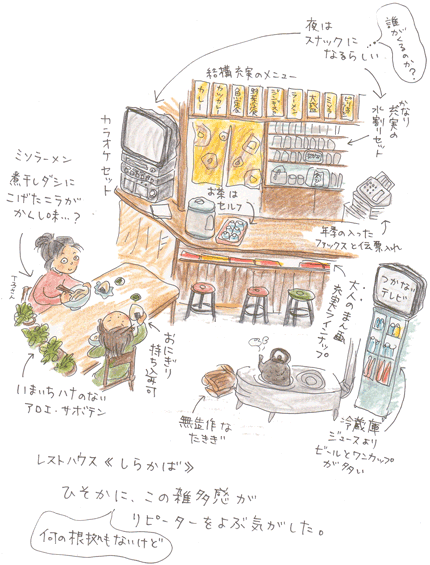 夜は
スナックに
なるらしい
…誰がくるのか?
結構充実のメニュー
カレー
カツカレー
ラーメン
かなり
充実の
水割りセット
カラオケセット
お茶は
セルフ
年季の入った
ファックスと伝票入れ
ミソラーメン
煮干しダシに
こげたニラが
かくし味…?
大人のまん画
充実ラインナップ
つかない
テレビ
おにぎり
持ち込み可
いまいちハナのない
アロエ・サボテン
無造作な
たきぎ
冷蔵庫
ジュースより
ビールとワンカップ
が多い
レストハウス《しらかば》
ひそかに、この雑多感が
リピーターをよぶ気がした。
何の根拠もないけど